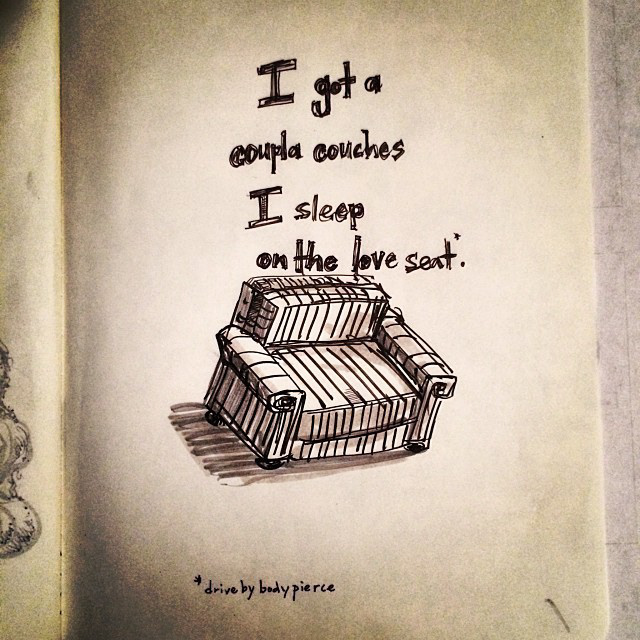 I got a
coupla couches
I sleep
on the love seat*.
*drive by body pierce